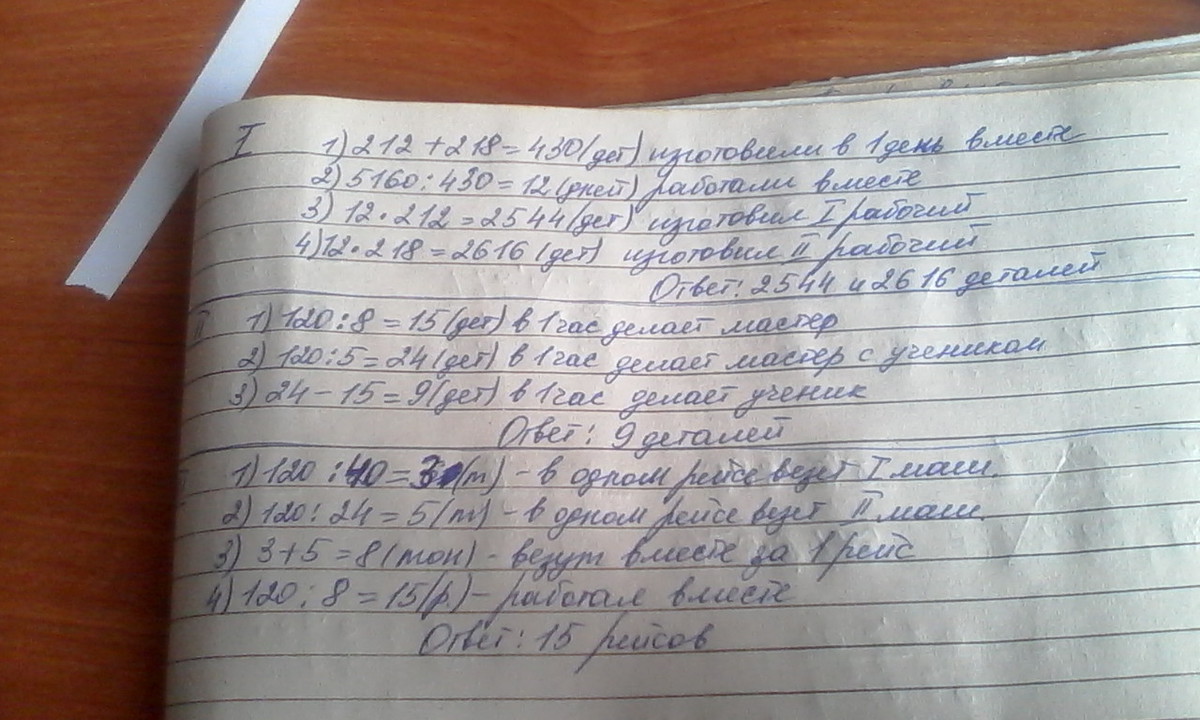 I 1) 212 + 218 = 430 (дет) изготовили в 1 день вместе
2) 5160 : 430 = 12 (дней) работали вместе
3) 12 • 212 = 2544 (дет) изготовил I рабочий
4) 12 • 218 = 2616 (дет) изготовил II рабочий
Ответ: 2544 и 2616 деталей
II 1) 120 : 8 = 15 (дет) в 1 час делает мастер
2) 120 : 5 = 24 (дет) в 1 час делает мастер с учеником
3) 24 - 15 = 9 (дет) в 1 час делает ученик
Ответ: 9 деталей
1) 120 : 40 = 3 (т) - в одном рейсе везет I маш.
2) 120 : 24 = 5 (т) - в одном рейсе везет II маш.
3) 3 + 5 = 8 (тон) - везут вместе за 1 рейс
4) 120 : 8 = 15 (р.) - работал вместе
Ответ: 15 рейсов